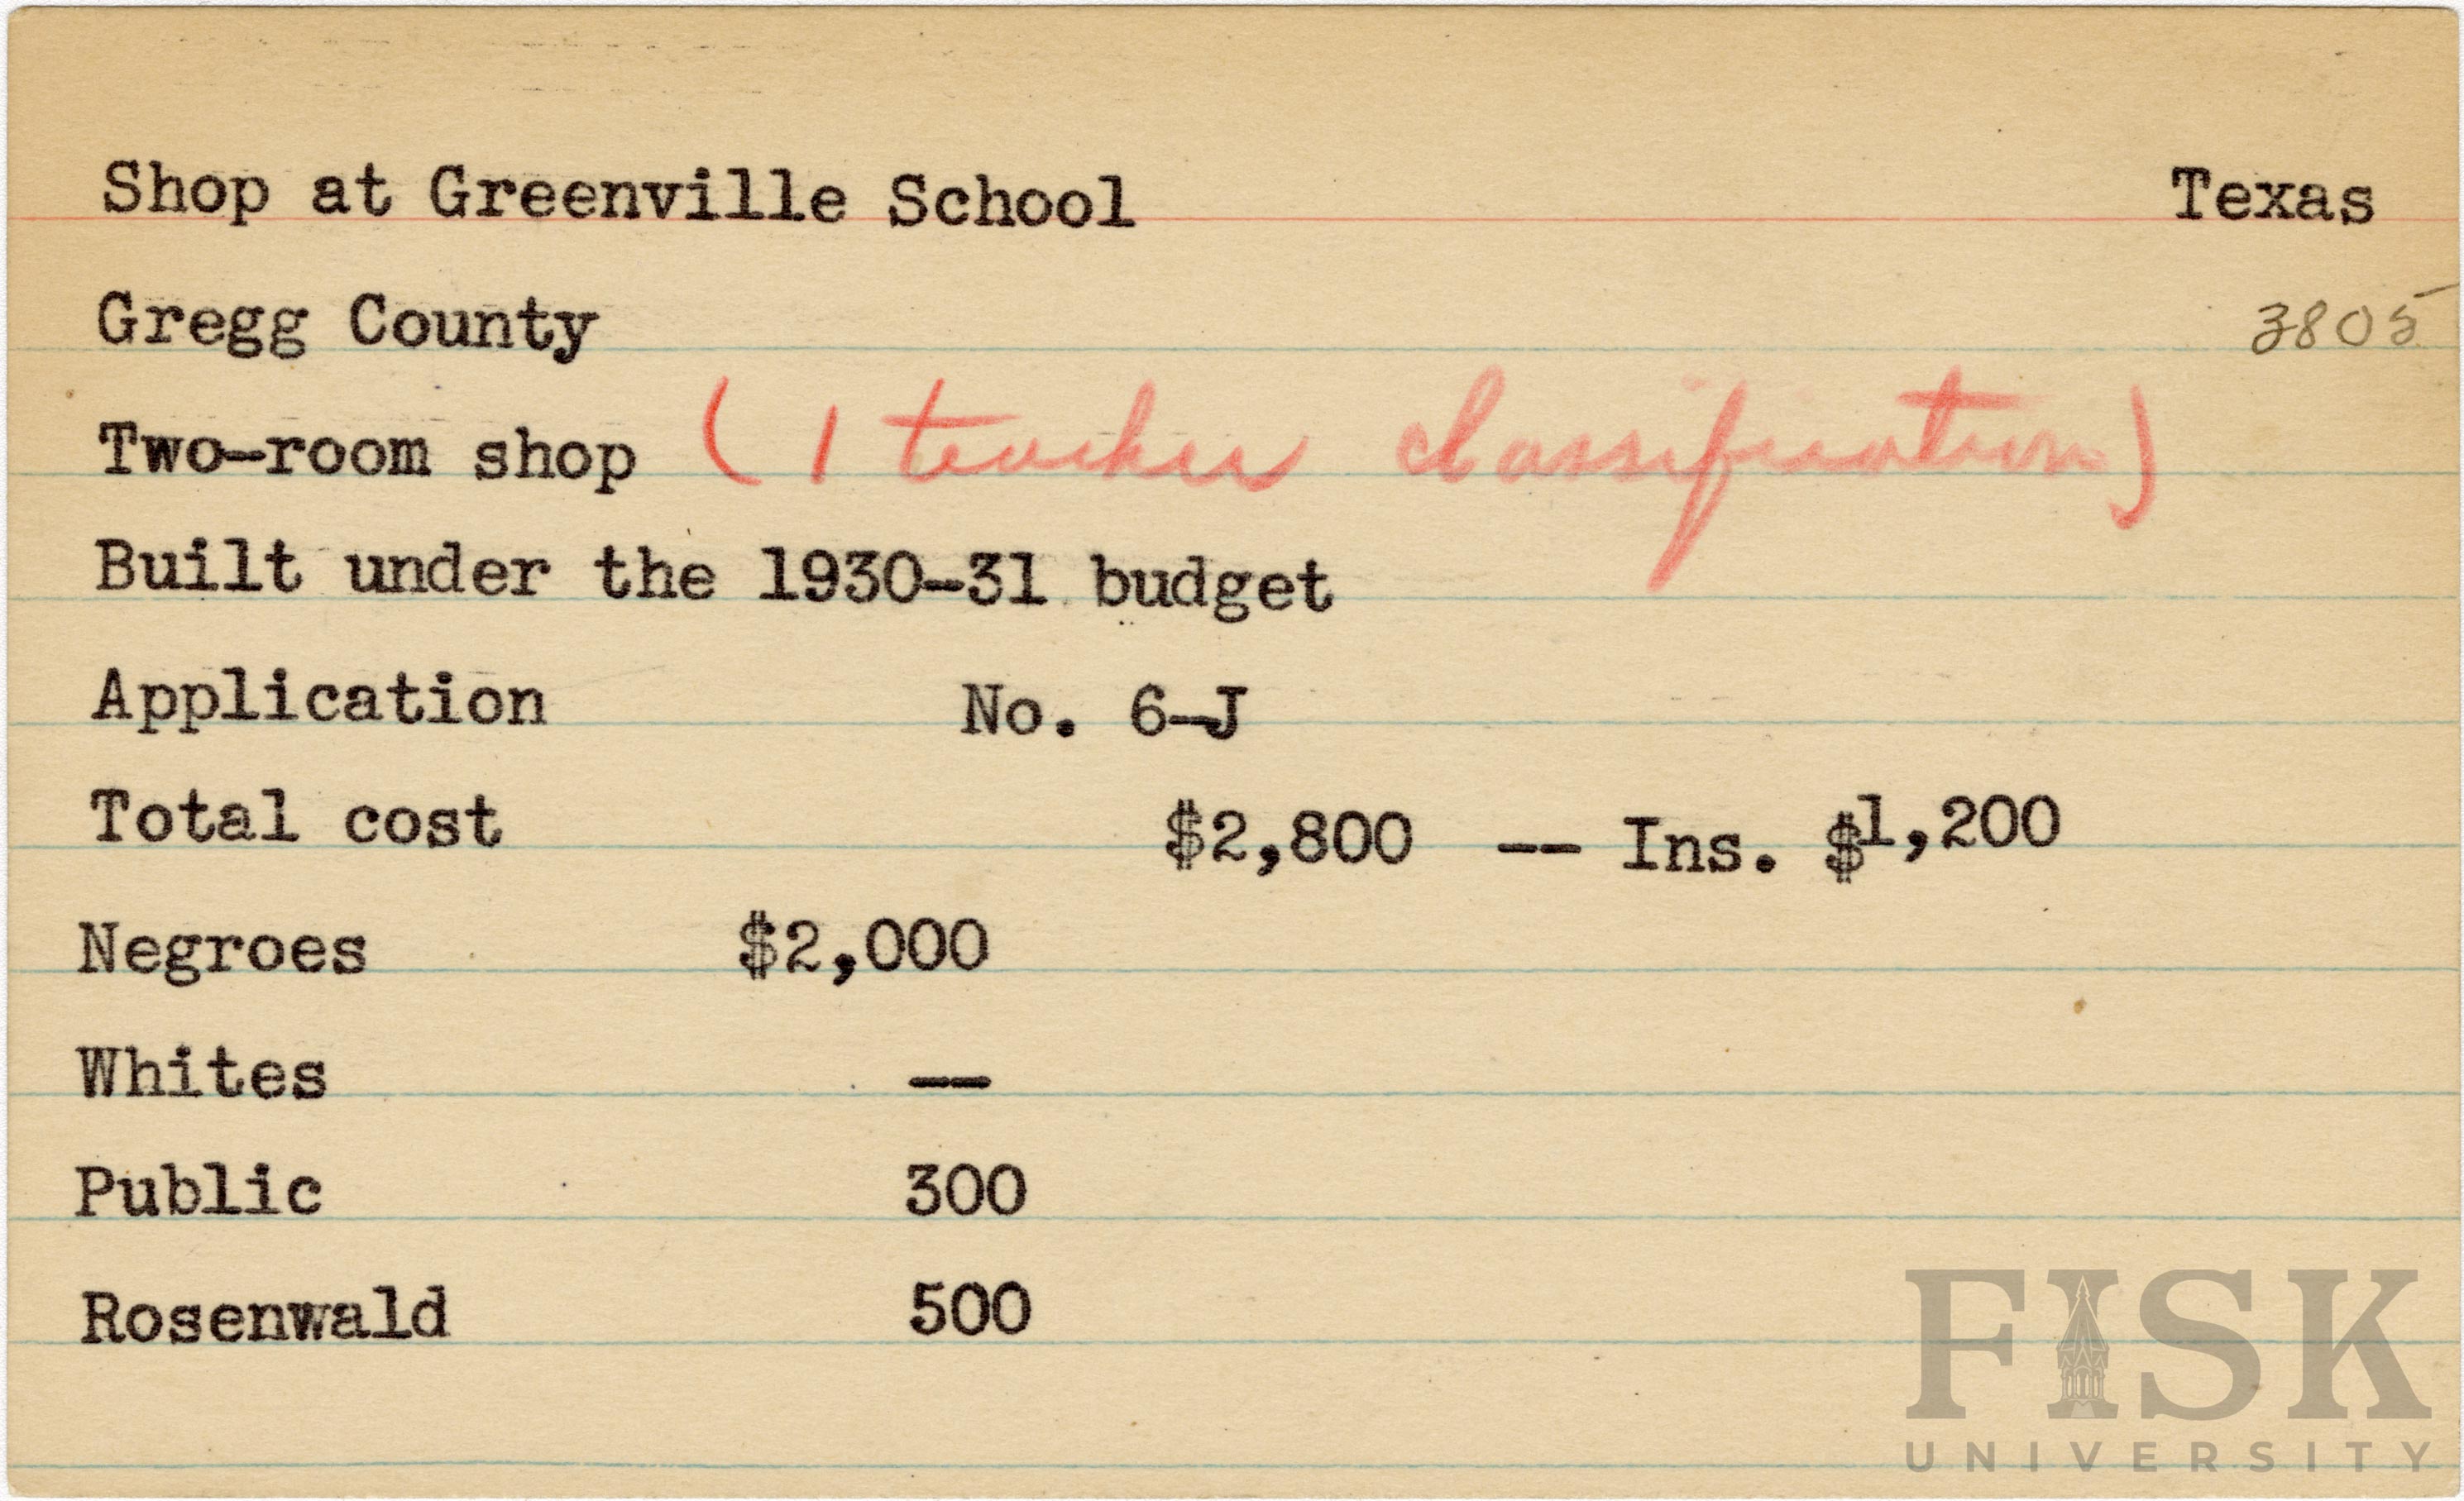 Shop at Greenville School Texas
Gregg County 3805
Two-room shop (1 teacher classification)
Built under the 1930-31 budget
Application No. 6-J
Total cost $2,800 -- Ins. $1,200
Negroes $2,000
Whites --
Public 300
Rosenwald 500
FISK
UNIVERSITY